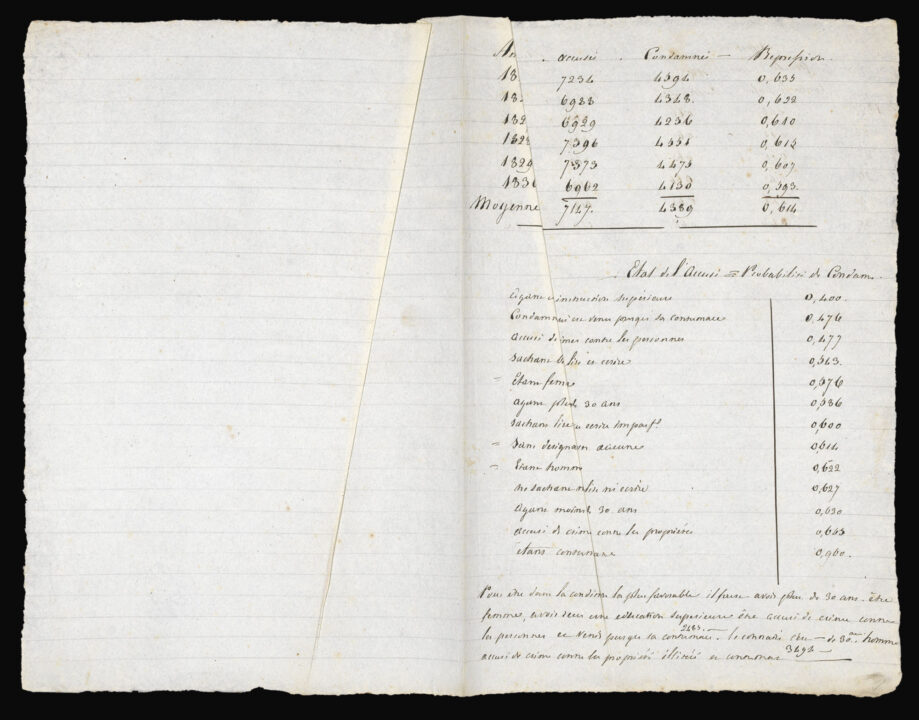 An accusés Condamnés Répression
18 7234 4594 0,635
182 6988 4348 0,622
182 6929 4236 0,610
1828 7396 4551 0,614
1829 7373 4475 0,607
1830 6962 4130 0,593
Moyenne 7147. 4389 0,614
Etat de l'accusé = Probabilité de Condam.
Ayant instruction supérieure 0,400.
Condamné et venu purger sa contumace 0,476
accusé crimes contre les personnes 0,477
sachant lire et écrire 0,543.
" Etant femme 0,576
ayant plus de 30 ans 0,586
sachant lire et écrire imparft 0,600
" Sans désignation aucune 0,614
" Etant homme 0,622
ne sachant ni lire ni écrire 0,627
ayant moins de 30 ans 0,630
accusé de crime contre les propriétés 0,655
étant contumace 0,960.
Pour être dans la condition la plus favorable il faut avoir plus de 30 ans - être
femmes, avoir reçu une éducation supérieure être accusé de crime contre
les personnes et venir purger sa contumace. le contraire - de 30 ans homme
accusé de crime contre les propriétés illétré et contumace